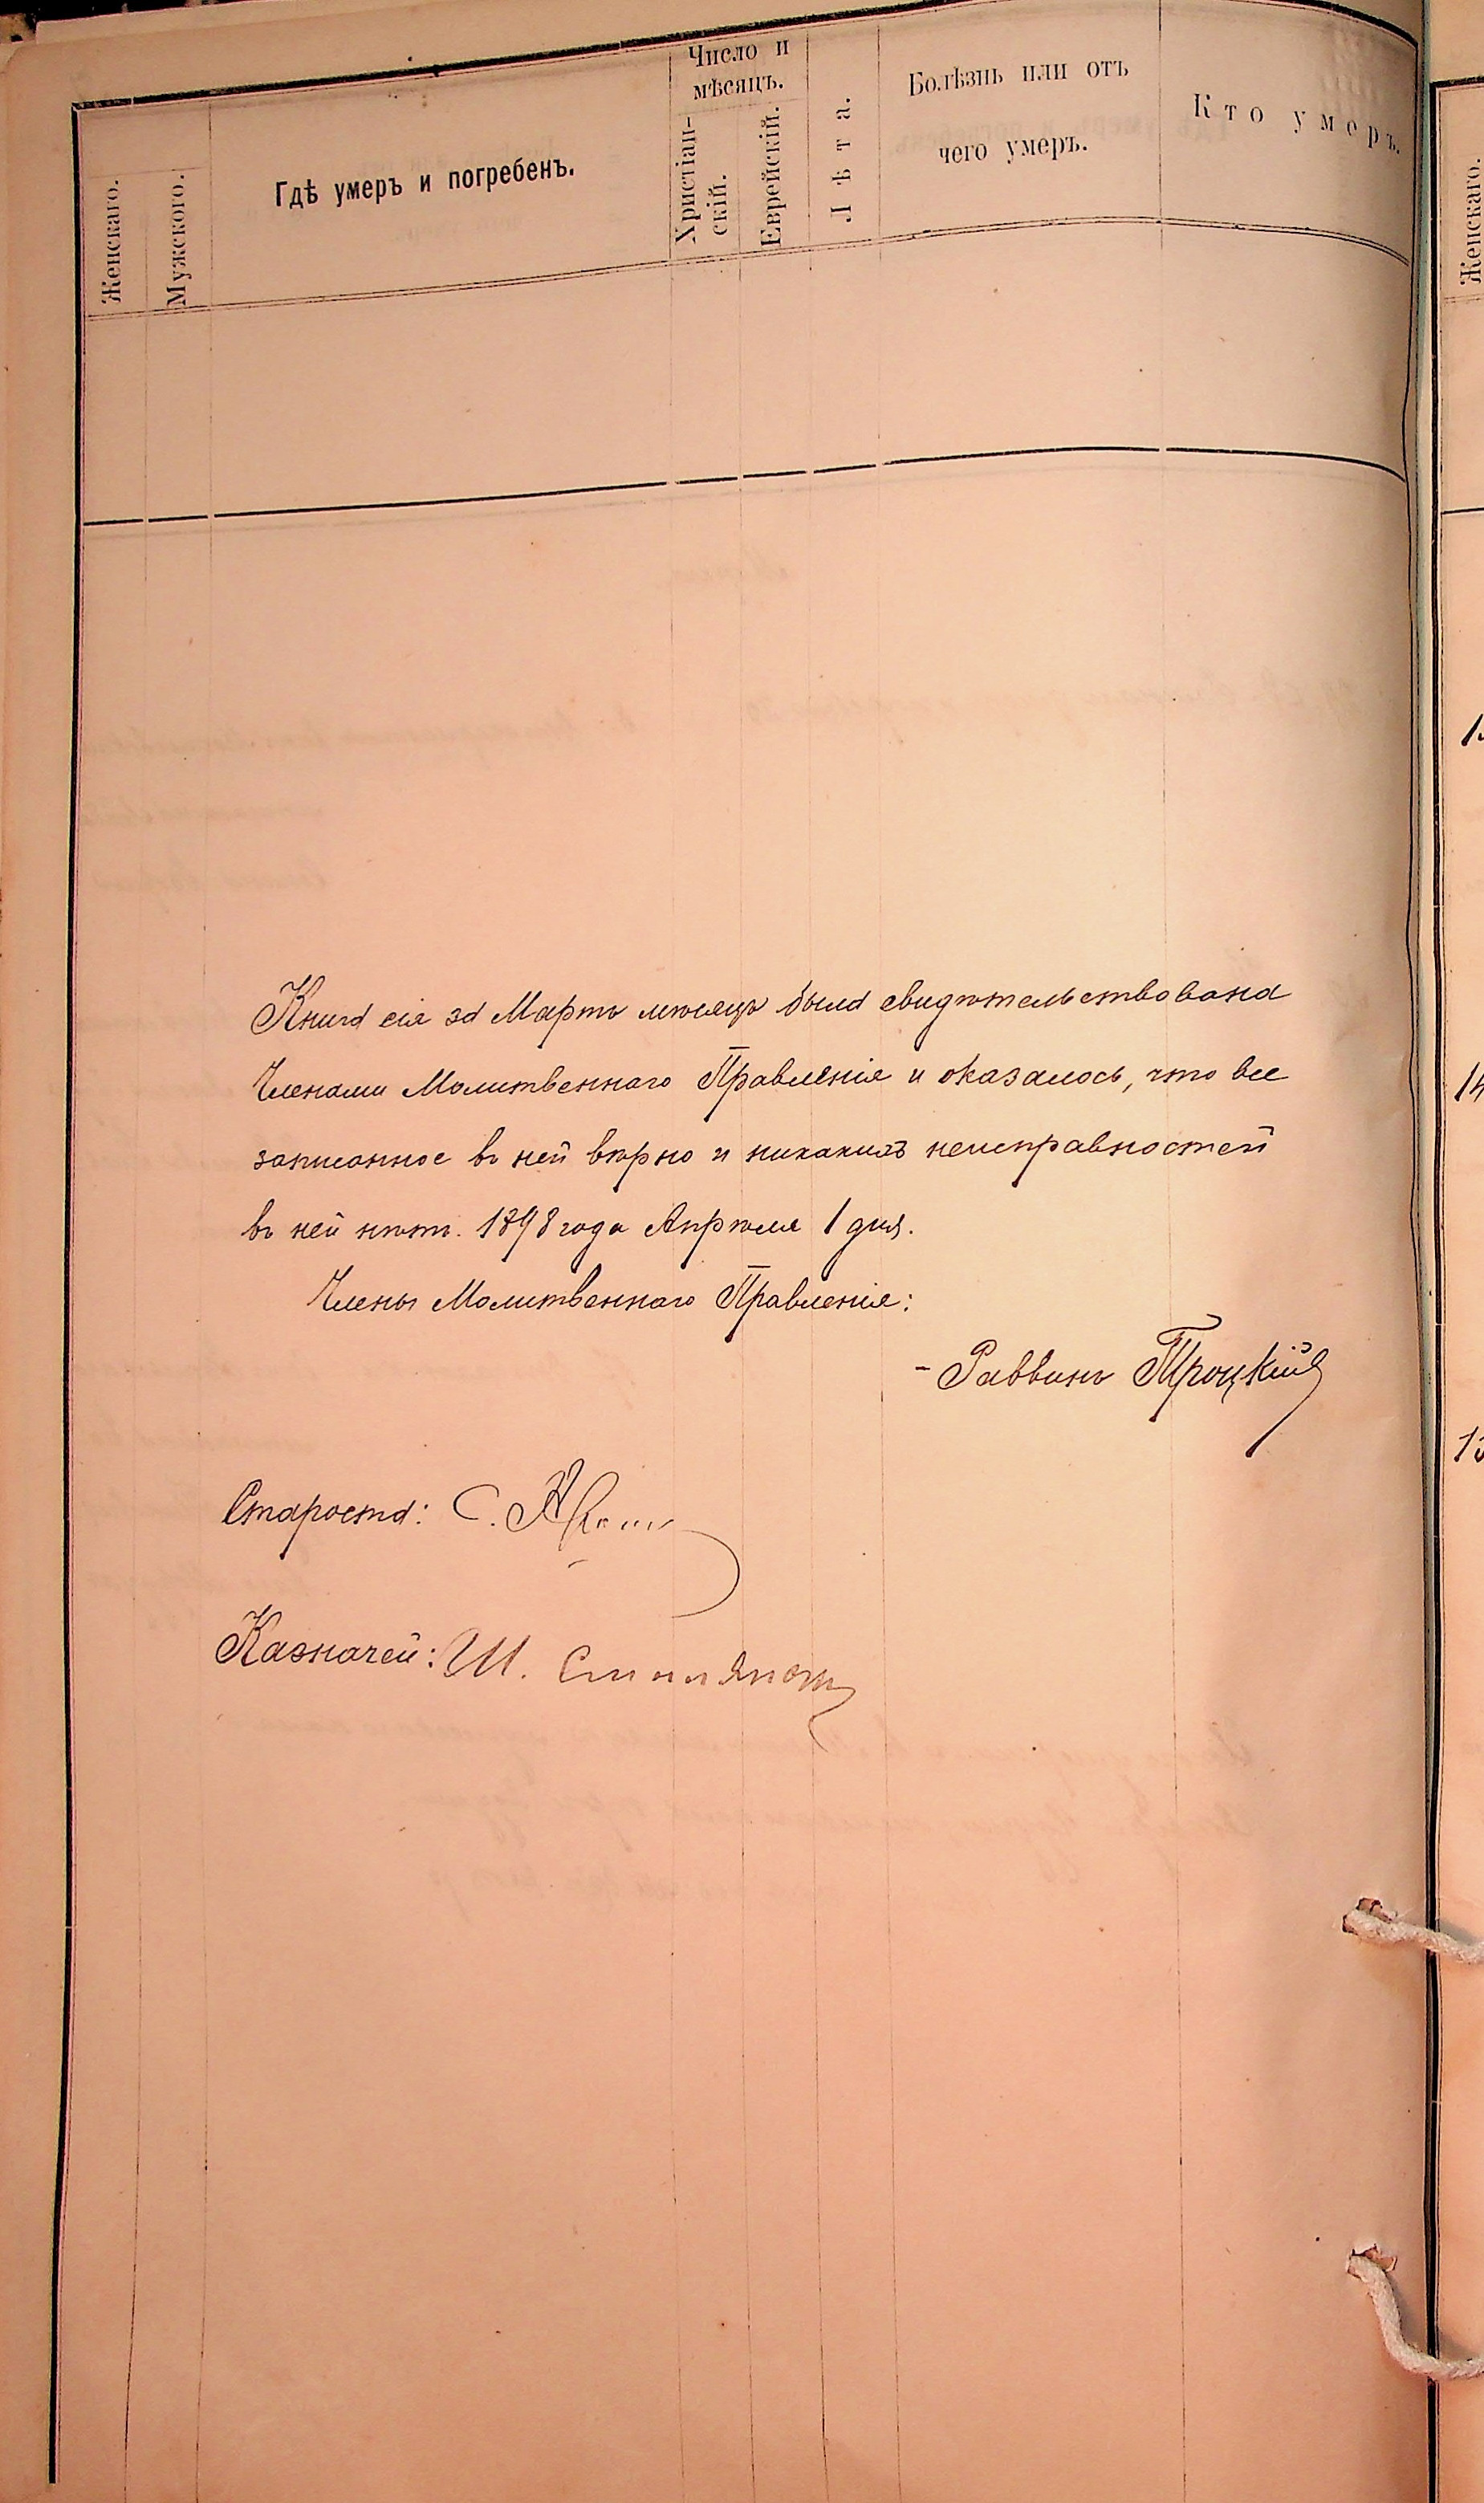 Женскаго.
Мужского.
Гдѣ умеръ и погребенъ.
Число и
мѣсяцъ.
Христіан-
скій.
Еврейскій.
Лѣта.
Болѣзнь или отъ
чего умеръ.
Кто умеръ.
Женскаго.
Книга сія за Мартъ мѣсяцъ была свидѣтельствована
Членами Молитвеннаго Правленія и оказалось, что все
записанное въ ней вѣрно и никакихъ неисправностей
въ ней нѣтъ. 1898 года Апрѣля 1 дня.
Члены Молитвеннаго Правленія:
- Раввинъ Троцкій
Староста: С.
Казначей: Ш.
14